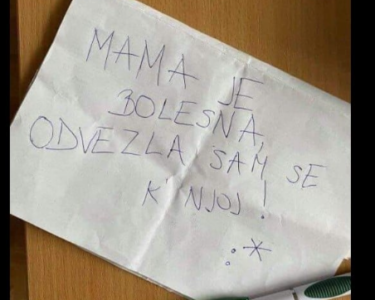 MAMA JE
BOLESNA,
ODVEZLA SAM SE
K' NJOJ!
:*